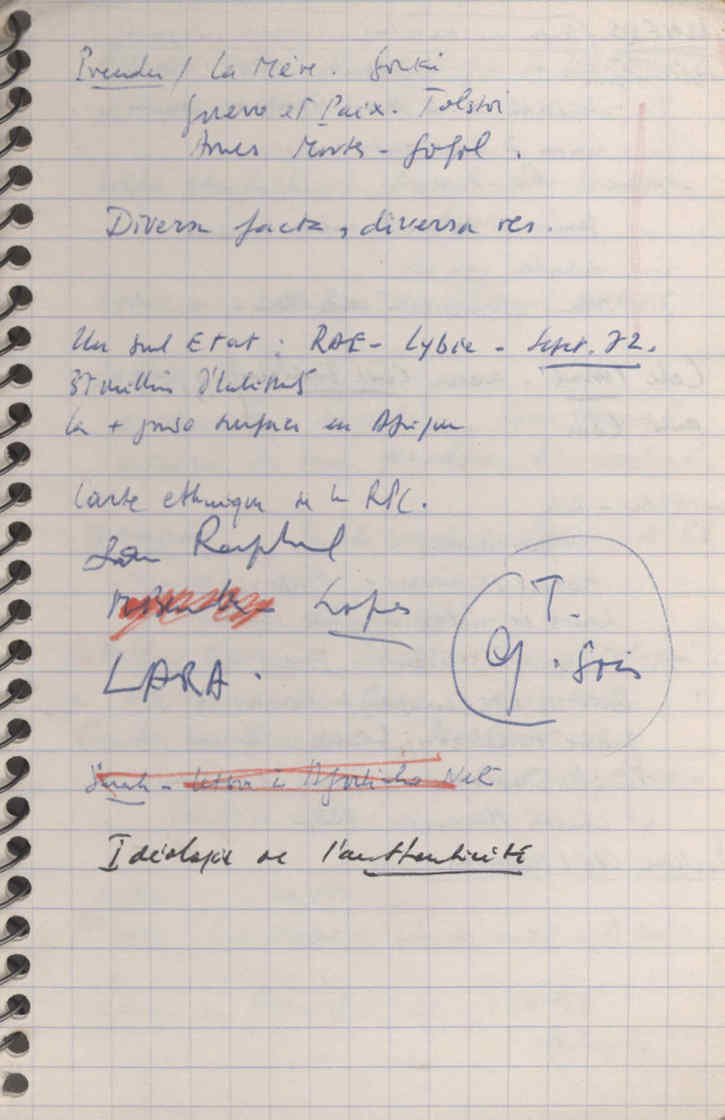 Prendre / La Mère. Gorki
Guerre et Paix. Tolstoi
Ames Mortes - Gogol.
Diversa facta, diversa res.
Un seul Etat : RAE - Lybie - Sept. 72.
37 millions d'habitants
La + grosse surface en Afrique
Carte ethnique de la RPC.
Raphael
Lopes
T.
LARA.
Lettre à Agostinho Neto
Idéologie de l'authenticité